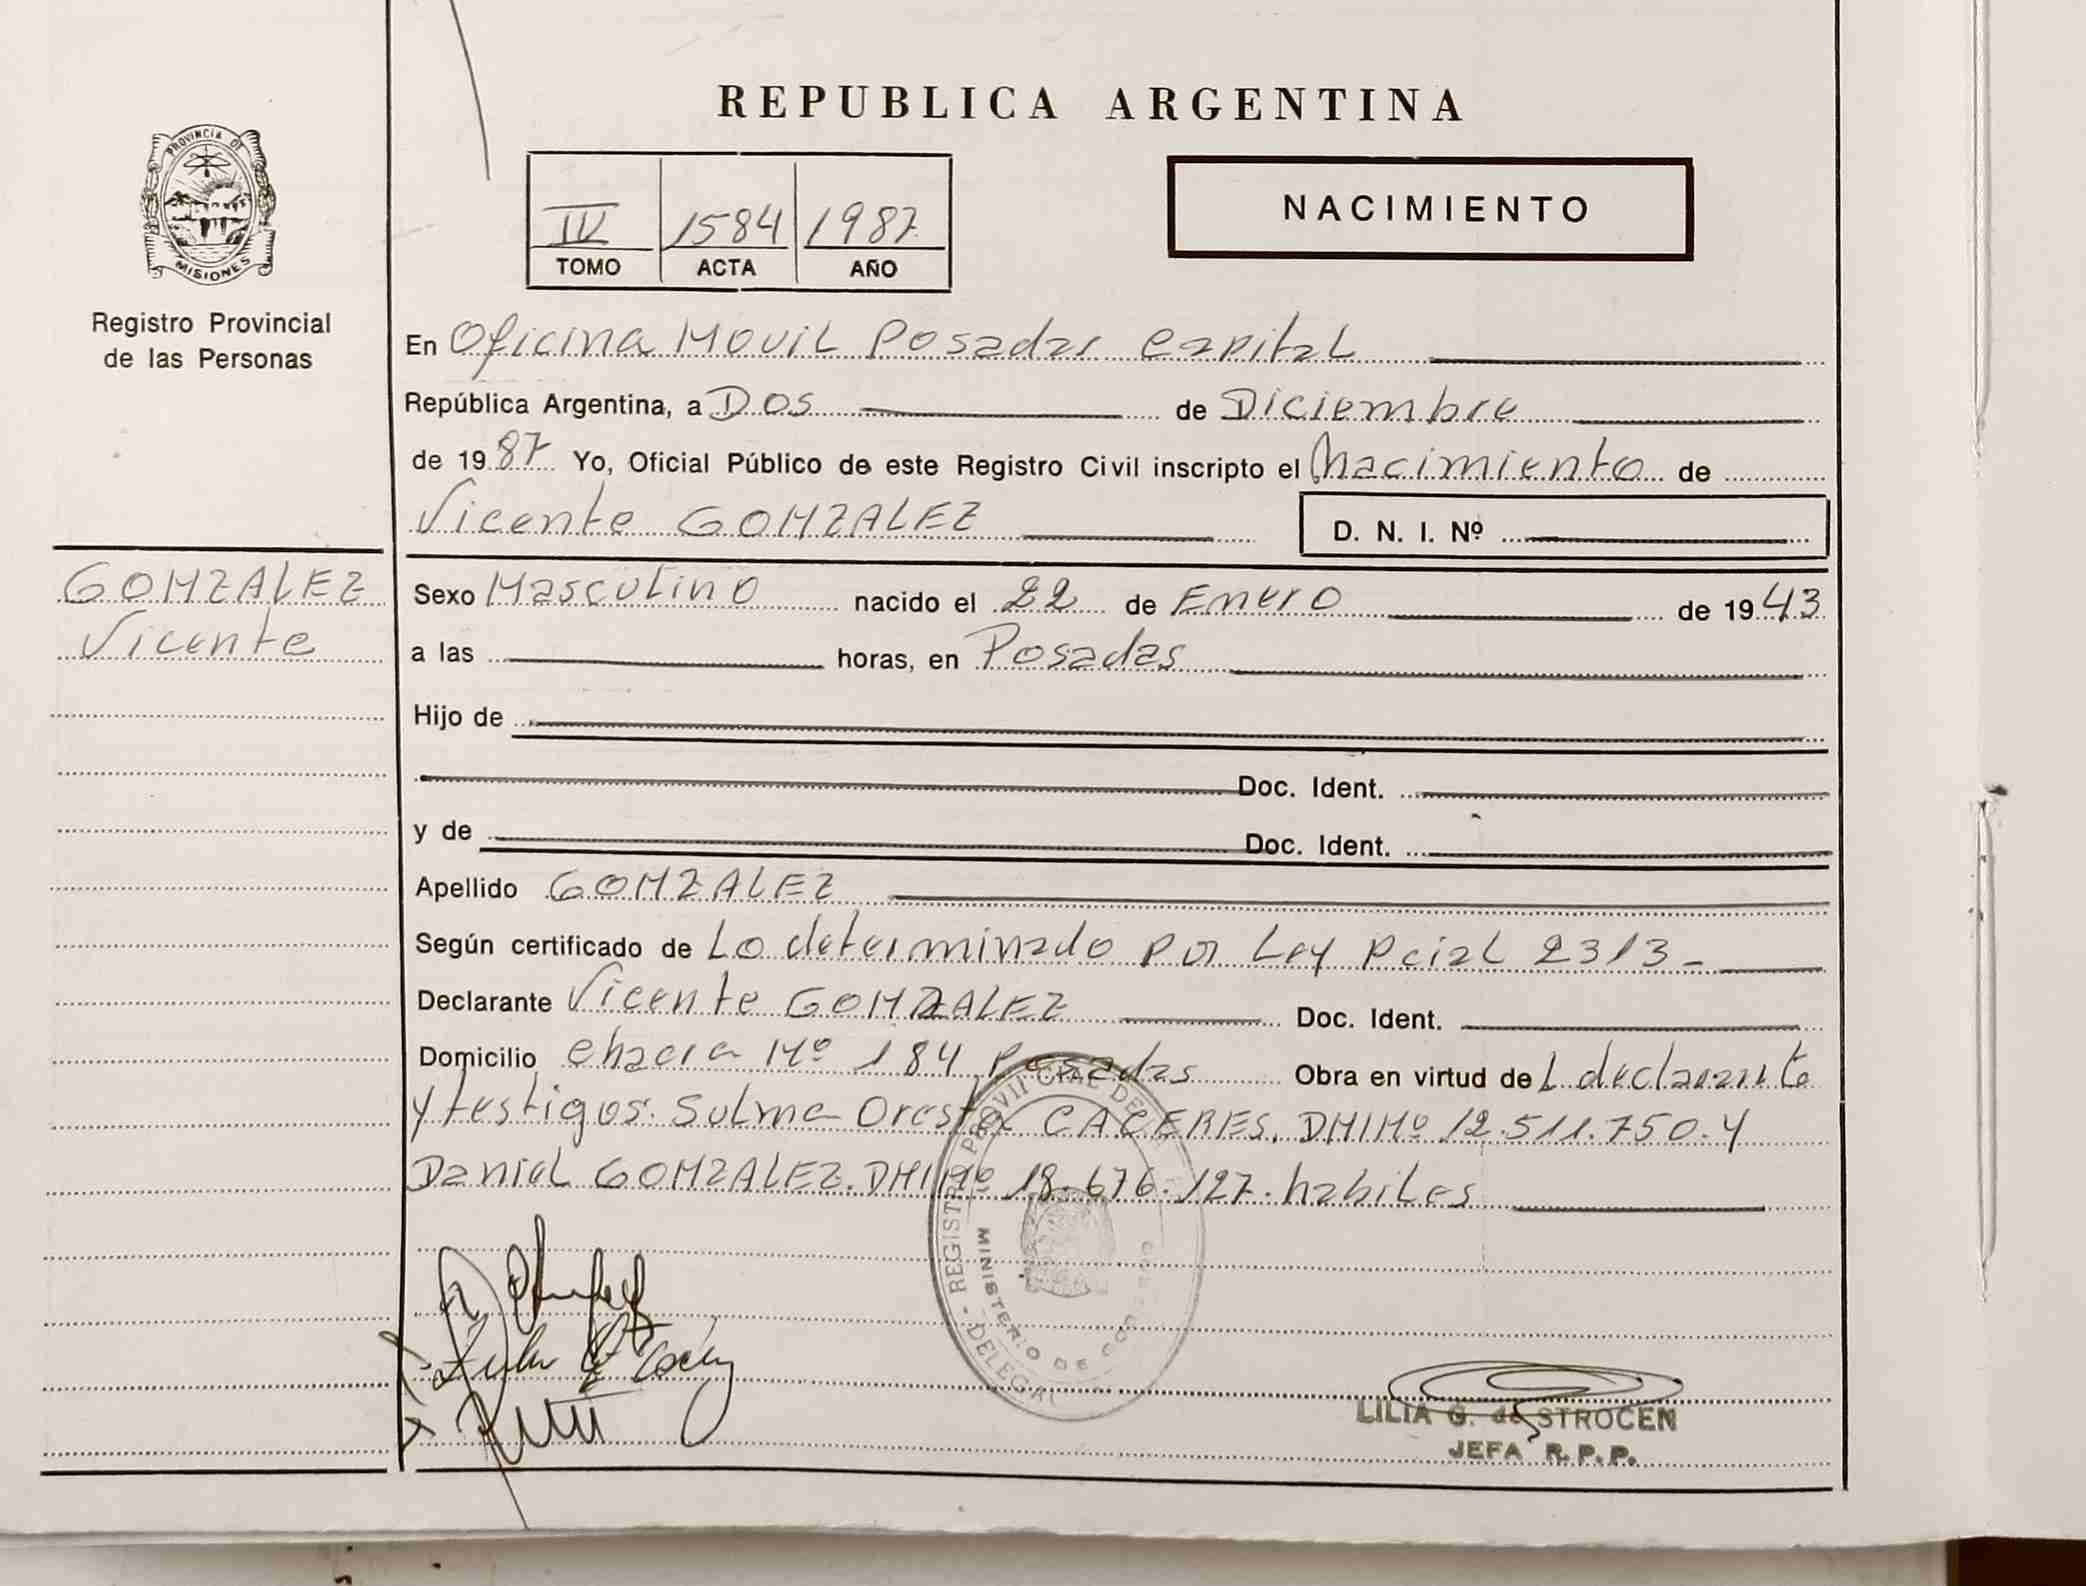 REPUBLICA ARGENTINA
PROVINCIA DE
MISIONES
Registro Provincial
de las Personas
NACIMIENTO
IV 1584 1987
TOMO ACTA AÑO
En Oficina Movil Posadas Capital
República Argentina, a Dos de Diciembre
de 1987 Yo, Oficial Público de este Registro Civil inscripto el Nacimiento de
Vicente GONZALEZ D. N. I. Nº
GONZALEZ
Vicente
Sexo Masculino nacido el 22 de Enero de 1943
a las horas, en Posadas
Hijo de
Doc. Ident.
y de Doc. Ident.
Apellido GONZALEZ
Según certificado de Lo determinado por Ley Pcial 2313-
Declarante Vicente GONZALEZ Doc. Ident.
Domicilio Chacra Nº 184 Posadas Obra en virtud del declarante
y testigos. Sulma Oreste CACERES. DNI Nº 12.511.750. y
Daniel GONZALEZ. DNI Nº 18.676.127. habiles
REGISTRO PROVINCIAL DE
MINISTERIO DE GOBIERNO
LILIA G. de STROCEN
JEFA R.P.P.